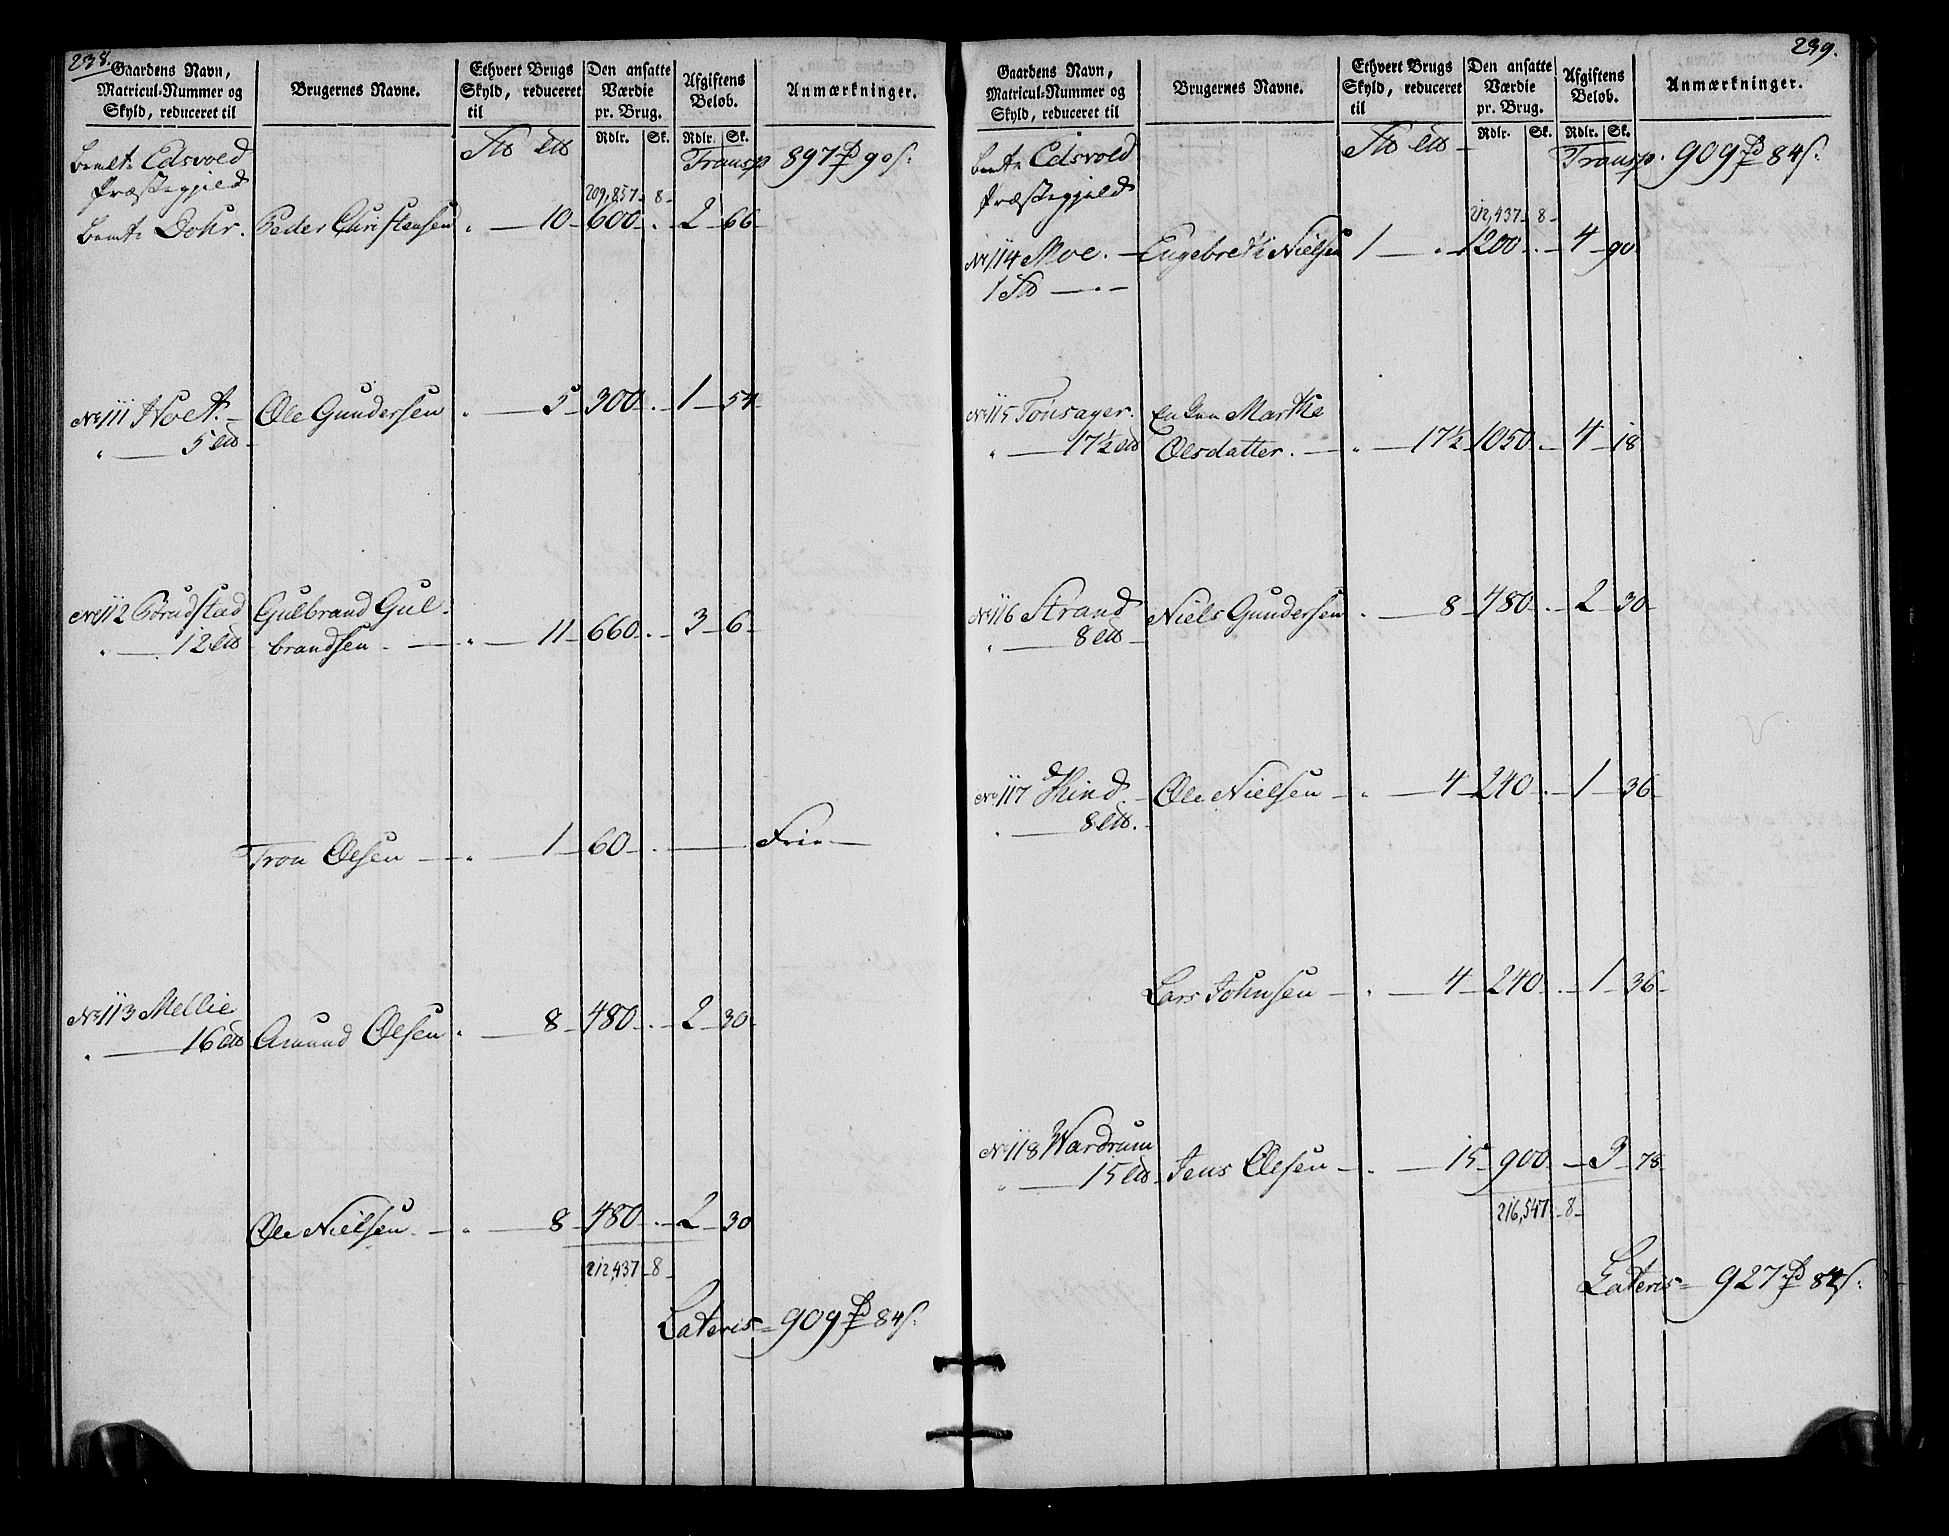 238.
Gaardens Navn,
Matricul-Nummer og
Skyld, reduceret til
Brugernes Navne.
Ethvert Brugs
Skyld, reduceret
til
Den ansatte
Værdie
pr. Brug.
Rdlr. Sk.
Afgiftens
Beløb.
Rdlr. Sk.
Anmærkninger.
Edsvold
Præstegjeld
Transp 897 90 s.
209,857 8
Dohr. Peder Christensen " 10 600 . 2 66
No 111 Hoel. Ole Gundersen " 5 300 . 1 54
" 5
No 112 Gulbrand Gul-
" 12 brandsen " 11 660 . 3 6
Tron Olsen " 1 60 . Frie
No 113 Mellie
" 16 Amund Olsen " 8 480 . 2 30
Ole Nielsen " 8 480 . 2 30
212,437 8
Lateris 909 84 s.
239.
Gaardens Navn,
Matricul-Nummer og
Skyld, reduceret til
Brugernes Navne.
Ethvert Brugs
Skyld, reduceret
til
Den ansatte
Værdie
pr. Brug.
Rdlr. Sk.
Afgiftens
Beløb.
Rdlr. Sk.
Anmærkninger.
Edsvold
Præstegjeld
Transp. 909 84 s.
212,437 8
No 114 Moe. Engebreth Nielsen 1 " 1200 . 4 90
1
No 115 Tonsager. Enken Marthe
" 17½ Olsdatter. " 17½ 1050 . 4 18
No 116 Strand Niels Gundersen " 8 480 . 2 30
" 8
No 117 Hind Ole Nielsen " 4 240 . 1 36
" 8
Lars Johnsen " 4 240 . 1 36
No 118 Wardrum
" 15 Jens Olsen " 15 900 3 78
216,547 8
Lateris 927 84 s.